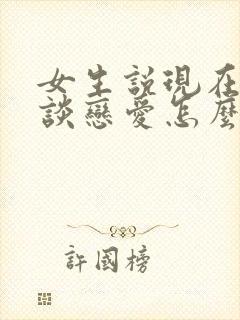 女生説現在
談戀愛怎麼
許國榜